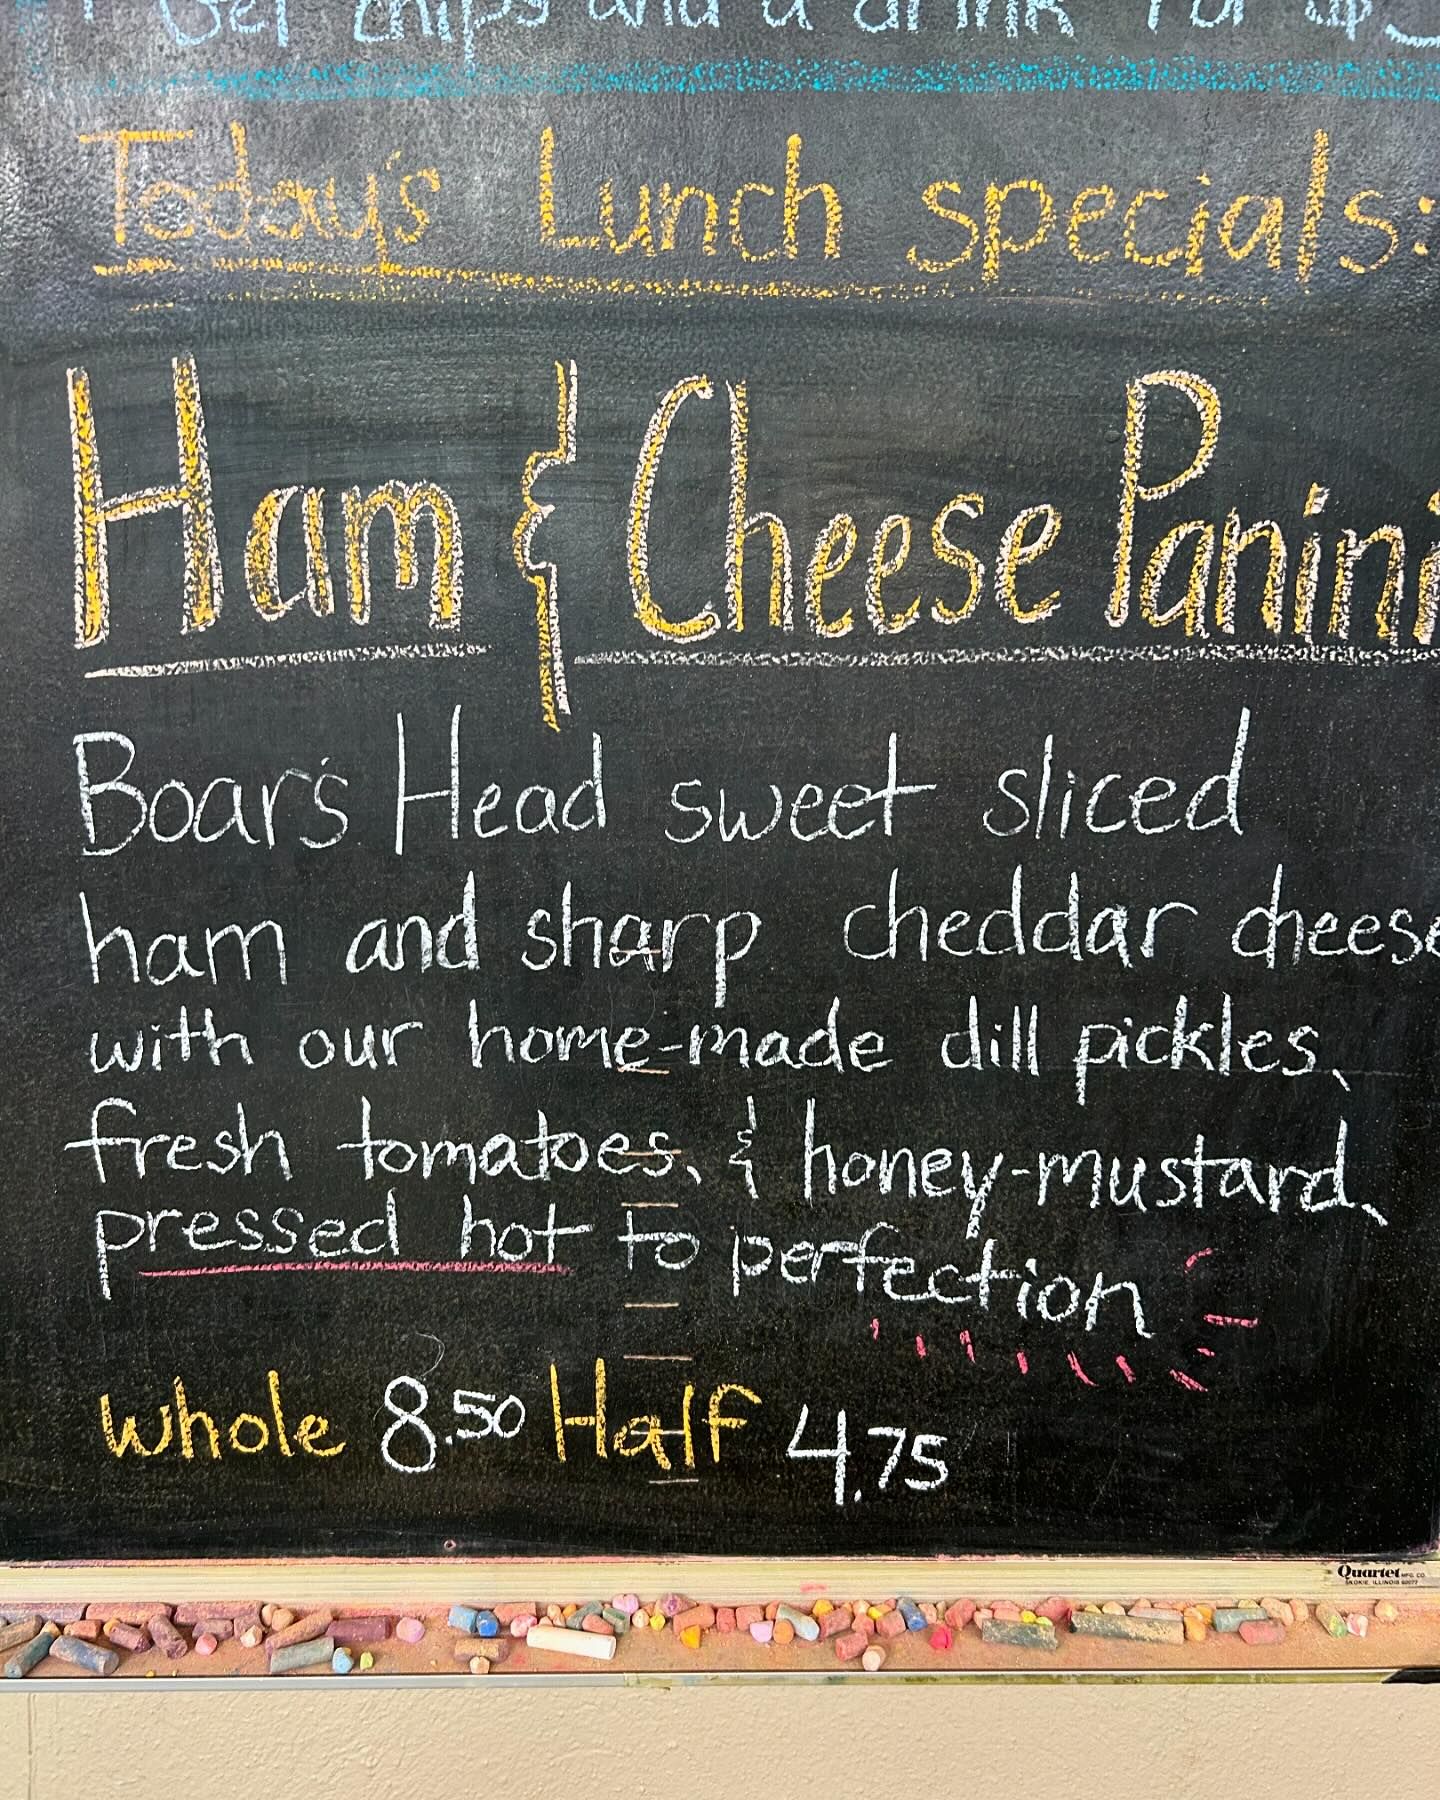 Get chips and a drink for
Today's Lunch specials:
Ham & Cheese Panini
Boar's Head sweet sliced
ham and sharp cheddar cheese
with our home-made dill pickles,
fresh tomatoes, & honey-mustard,
pressed hot to perfection
Whole 8.50 Half 4.75
Quartet MFG. CO.
SKOKIE, ILLINOIS 60077